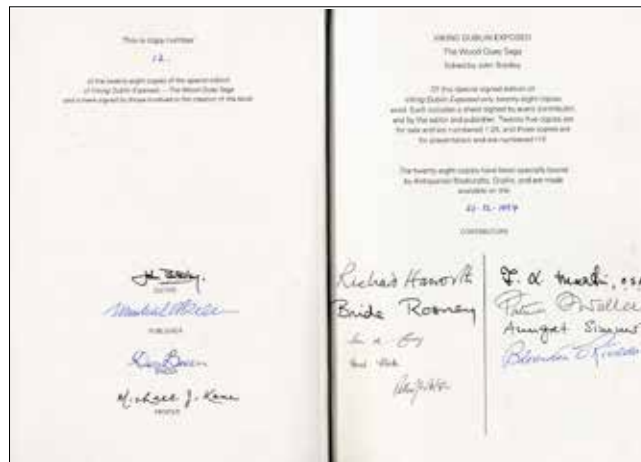 This is copy number
12.
of the twenty eight copies of the special edition
of Viking Dublin Exposed — The Wood Quay Saga
and is here signed by those involved in the creation of the book
EDITOR
PUBLISHER
Michael J. Kane
PRINTER
VIKING DUBLIN EXPOSED
The Wood Quay Saga
Edited by John Bradley
Of this special signed edition of
Viking Dublin Exposed only twenty eight copies
exist. Each includes a sheet signed by every contributor,
and by the editor and publisher. Twenty five copies are
for sale and are numbered and three copies are
for presentation and are numbered
The twenty eight copies have been specially bound
by Antiquarian Bookcrafts, Dublin, and are made
available on the
CONTRIBUTORS
Richard Haworth
Bride Rosney
F. X. Martin, O.S.A
Anngret Simms